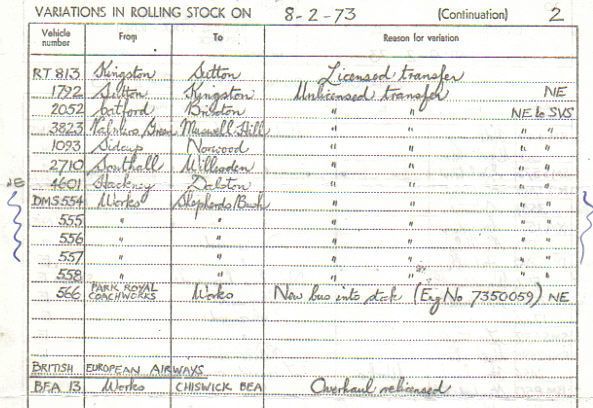 VARIATIONS IN ROLLING STOCK ON 8-2-73 (Continuation) 2
Vehicle number From To Reason for variation
RT 813 Kingston Sutton Licensed transfer
1792 Sutton Kingston Unlicensed transfer NE
2052 Catford Brixton " " NE to SVS
3823 Palmers Green Muswell Hill " " " "
1093 Sidcup Norwood " " " "
2710 Southall Willesden " " " "
NE 4601 Hackney Dalston " " " "
DMS 554 Works Shepherds Bush " " " "
555 " " " " " "
556 " " " " " "
557 " " " " " "
558 " " " " " "
566 PARK ROYAL COACHWORKS Works New bus into stock (Eng No 7350059) NE
BRITISH EUROPEAN AIRWAYS
BEA 13 Works CHISWICK BEA Overhaul relicensed